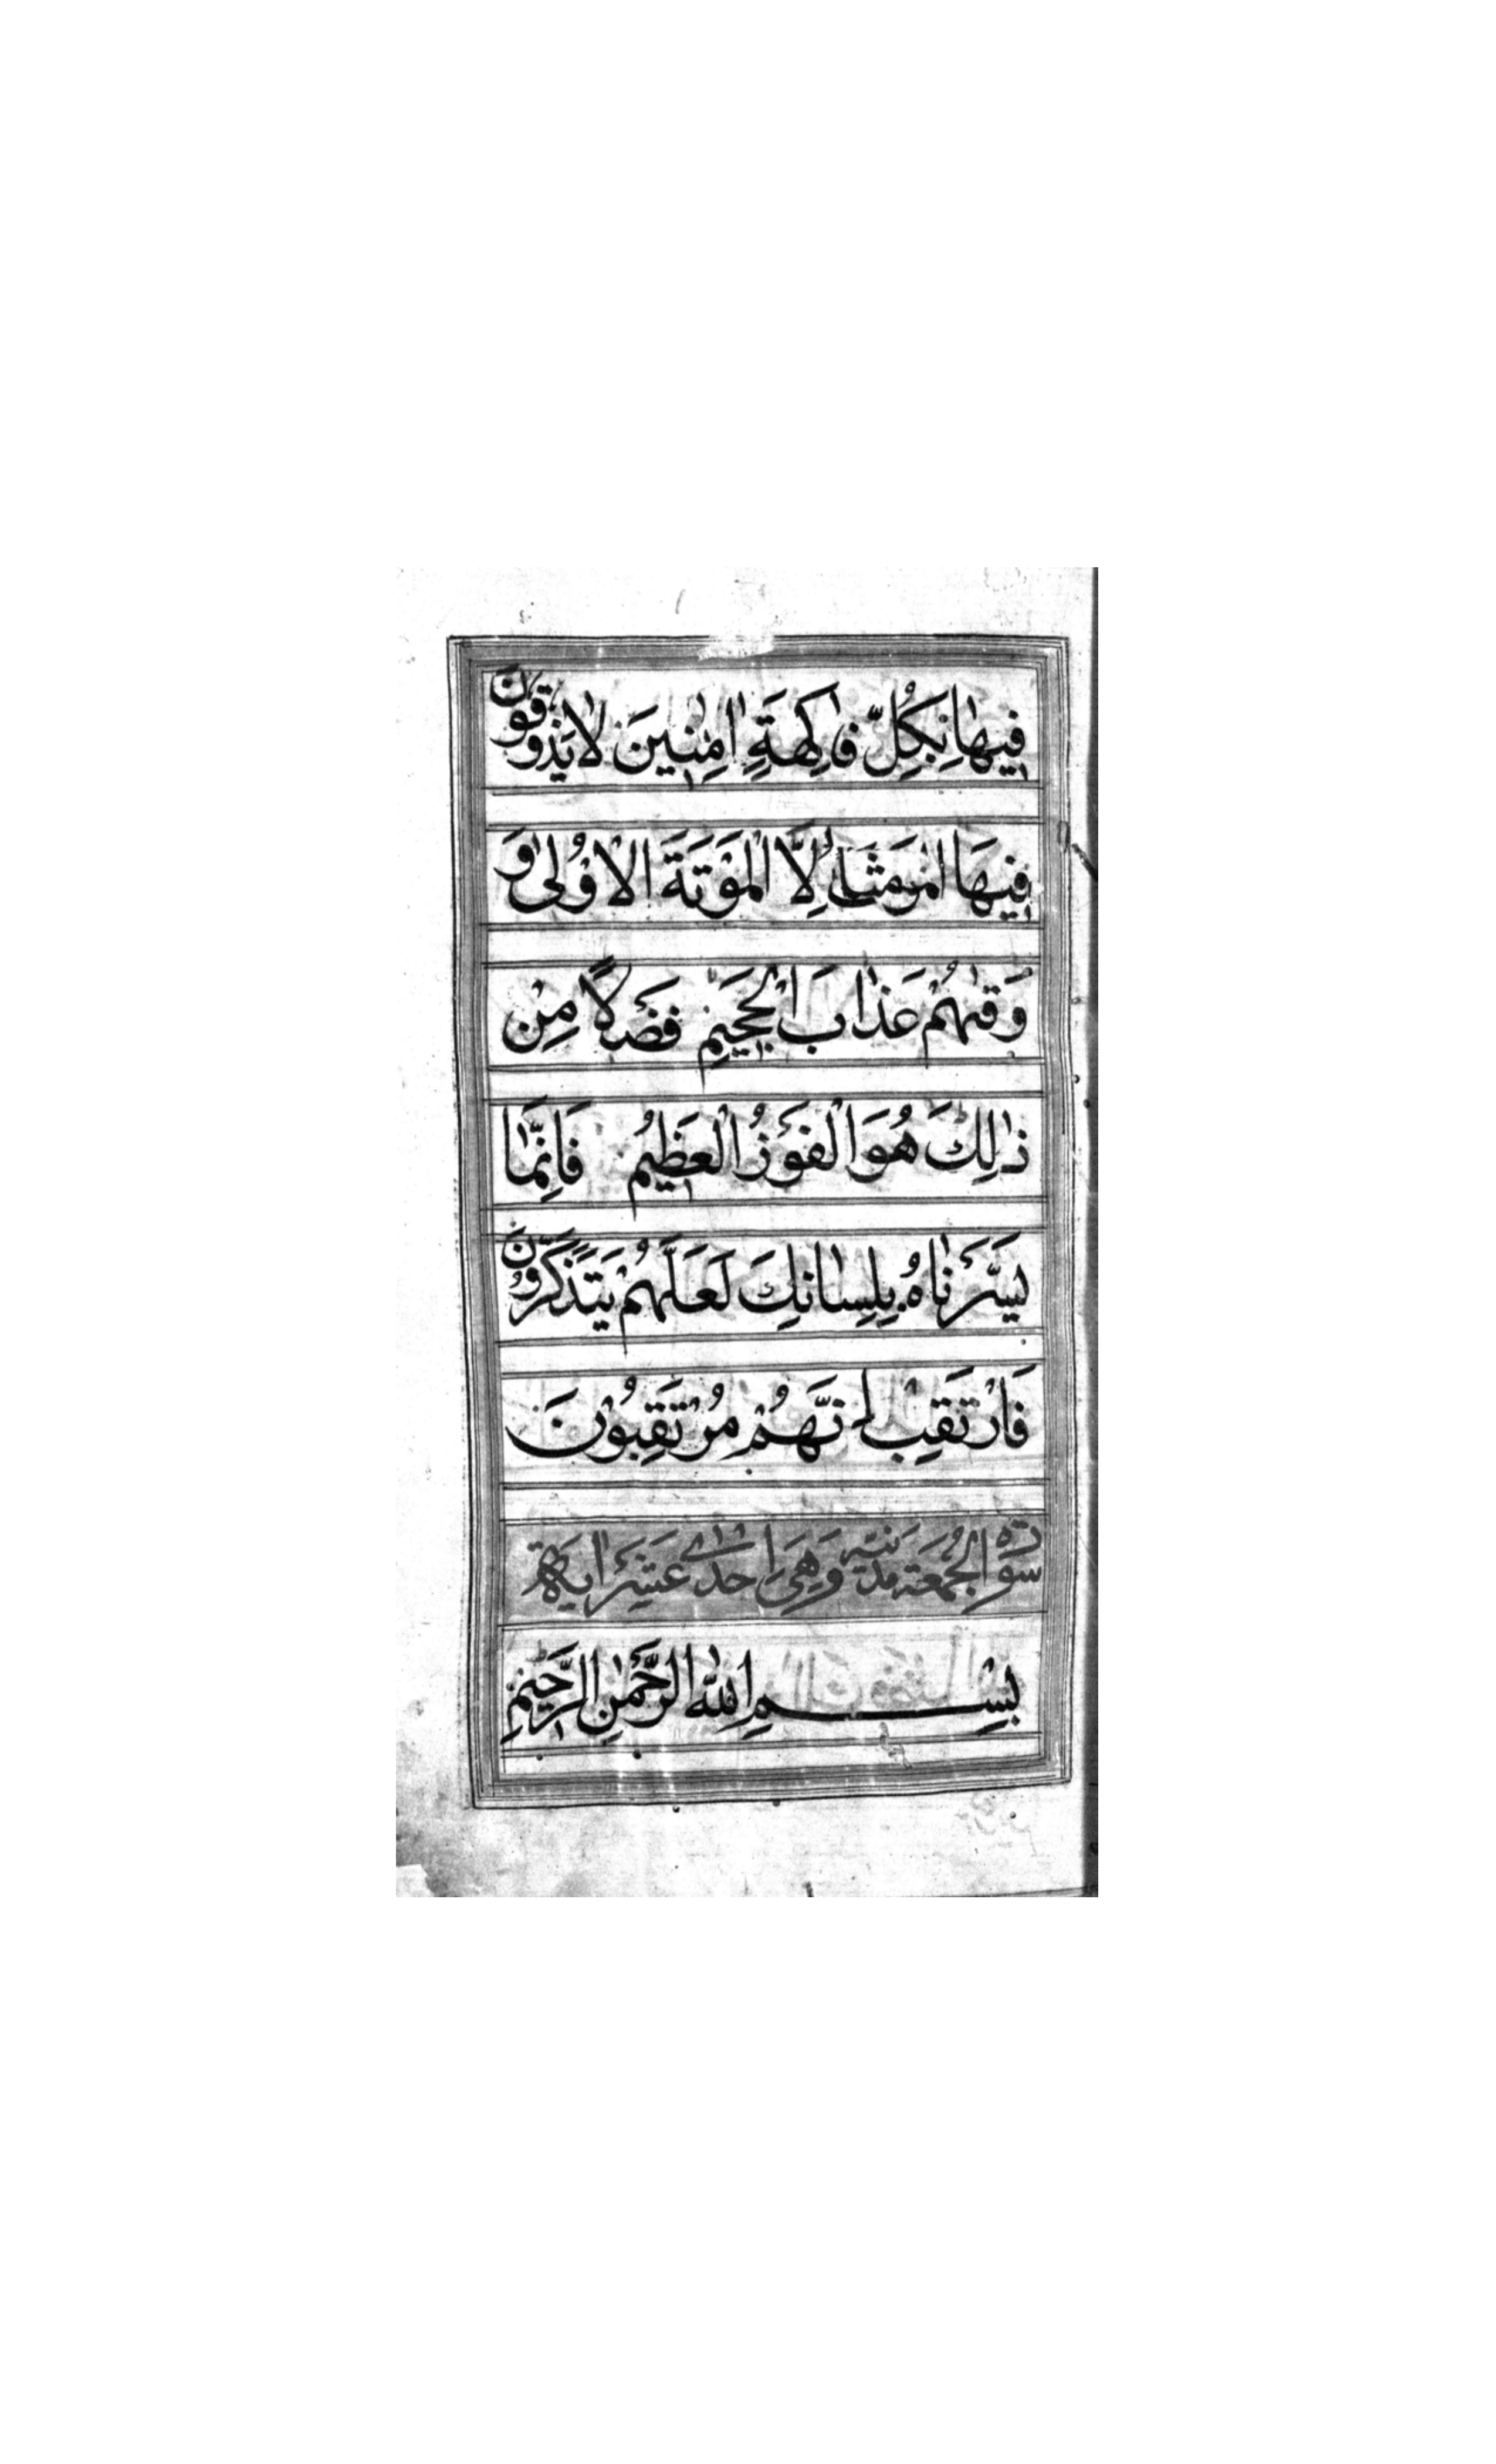 فِيهَا بِكُلِّ فَاكِهَةٍ اٰمِنِينَ لَا يَذُوقُونَ
فِيهَا الْمَوْتَ اِلَّا الْمَوْتَةَ الْاُوْلٰى وَ
وَقٰىهُمْ عَذَابَ الْجَحِيْمِ فَضْلًا مِنْ
ذٰلِكَ هُوَ الْفَوْزُ الْعَظِيْمُ فَاِنَّمَا
يَسَّرْنَاهُ بِلِسَانِكَ لَعَلَّهُمْ يَتَذَكَّرُوْنَ
فَارْتَقِبْ اِنَّهُمْ مُرْتَقِبُوْنَ
سورة الجُمعَة مدنيّه وَهِيَ احدى عَشَرَ ايَة
بِسْمِ اللهِ الرَّحْمٰنِ الرَّحِيْمِ